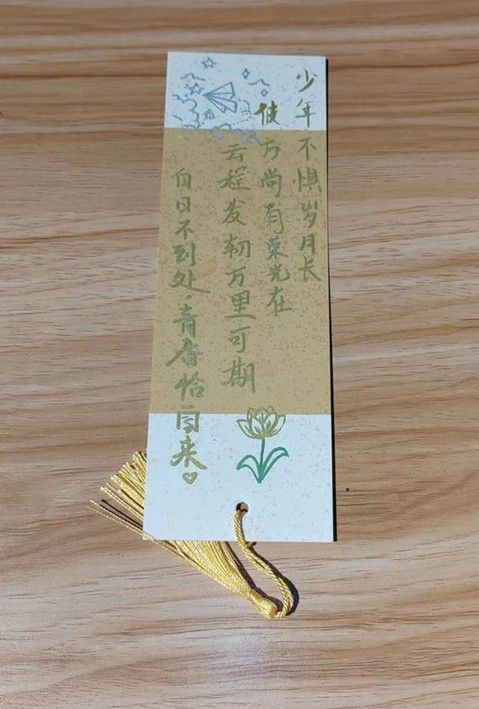 少年不惧岁月长
彼方尚有荣光在
云程发轫万里可期
白日不到处，青春恰自来